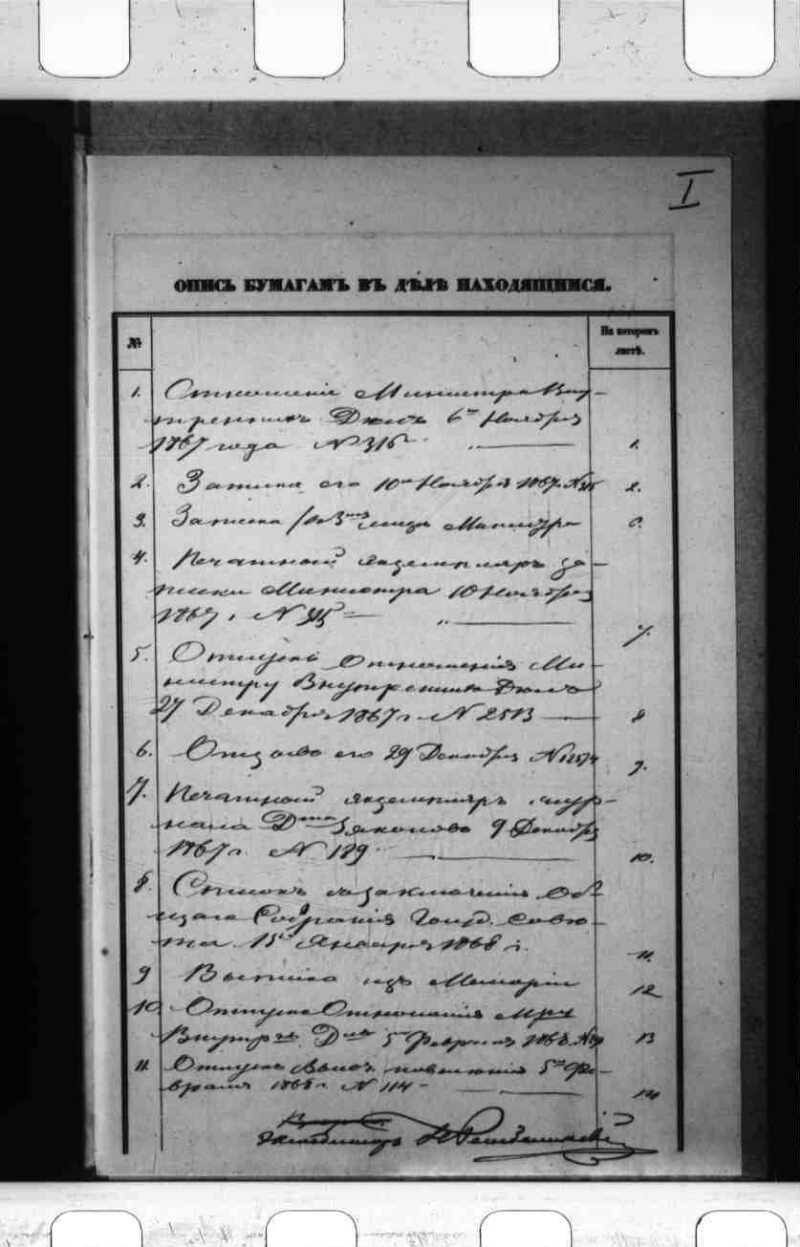 I
ОПИСЬ БУМАГАМЪ ВЪ ДѢЛѢ НАХОДЯЩИМСЯ.
№
На которомъ
листѣ.
1. Отношеніе Министра Вну-
треннихъ Дѣлъ 6го Ноября
1867 года № 316 1.
2. Записка его 10го Ноября 1867 № 315 2.
3. Записка Министра 6.
4. Печатный экземпляръ за-
писки Министра 10 Ноября
1867 г. № 315 7.
5. Отпускъ отношенія Ми-
нистру Внутреннихъ Дѣлъ
27 Декабря 1867 г. № 2513 8
6. Отзывъ его 29 Декабря № 12574 9.
7. Печатный экземпляръ жур-
нала Дта Законовъ 9 Декабря
1867 г. № 189 10.
8. Списокъ съ заключенія Об-
щаго Собранія Госуд. Совѣ-
та 15го Января 1868 г. 11.
9 Выписка изъ Меморіи 12
10. Отпускъ Отношенія Мру
Внутрхъ Длъ 5 Февраля 1868 13
11. Отпускъ Высоч. повелѣнія 5го Фе-
враля 1868 г. № 114 14
Экспедиторъ